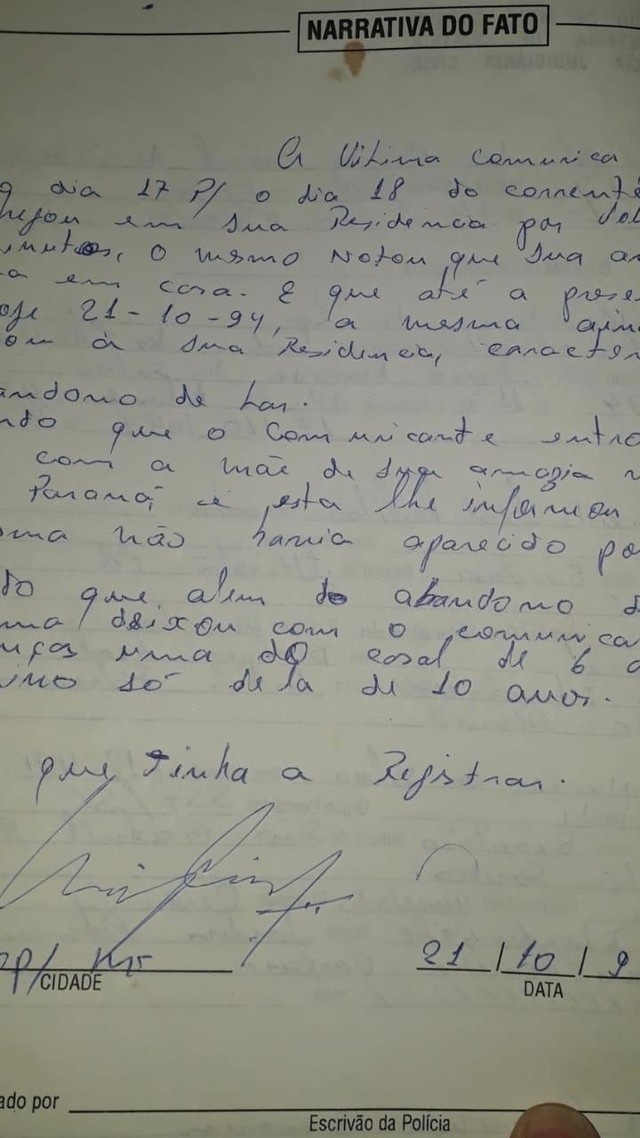 NARRATIVA DO FATO
A Vitima comunica
q dia 17 P/ o dia 18 do corrente
hegou em sua Residencia por vol
inutos, o mesmo notou que sua am
a em casa. E que até a prese
oje 21-10-94, a mesma ain
ou à sua Residencia, caracter
andono de Lar.
ndo que o Comunicante entro
com a mãe de sua amazia n
Paraná, e esta lhe informou
sma não havia aparecido po
do que alem do abandono d
ma deixou com o comunica
nças uma do casal de 6 a
ino só dela de 10 anos.
que tinha a Registrar.
CIDADE
21 / 10 / 9
DATA
ado por
Escrivão da Polícia